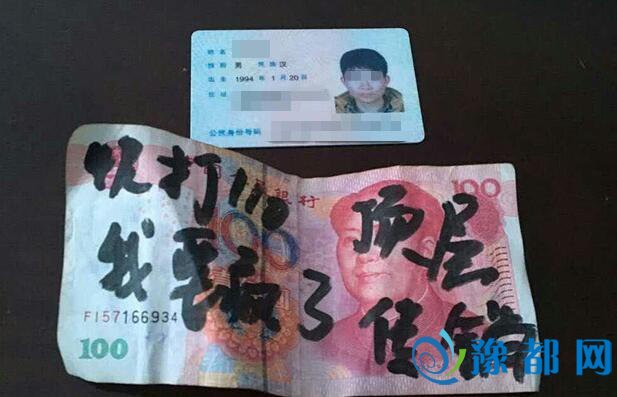 姓名
性别 男 民族 汉
出生 1994 年 1 月 20 日
住址
公民身份号码
快打110
我要疯了
顶层
传销
银行
100
100
FI57166934
100
豫都网